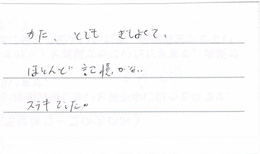 また、とても きもちよくて、
ほとんど 記憶がない。
ステキでした。